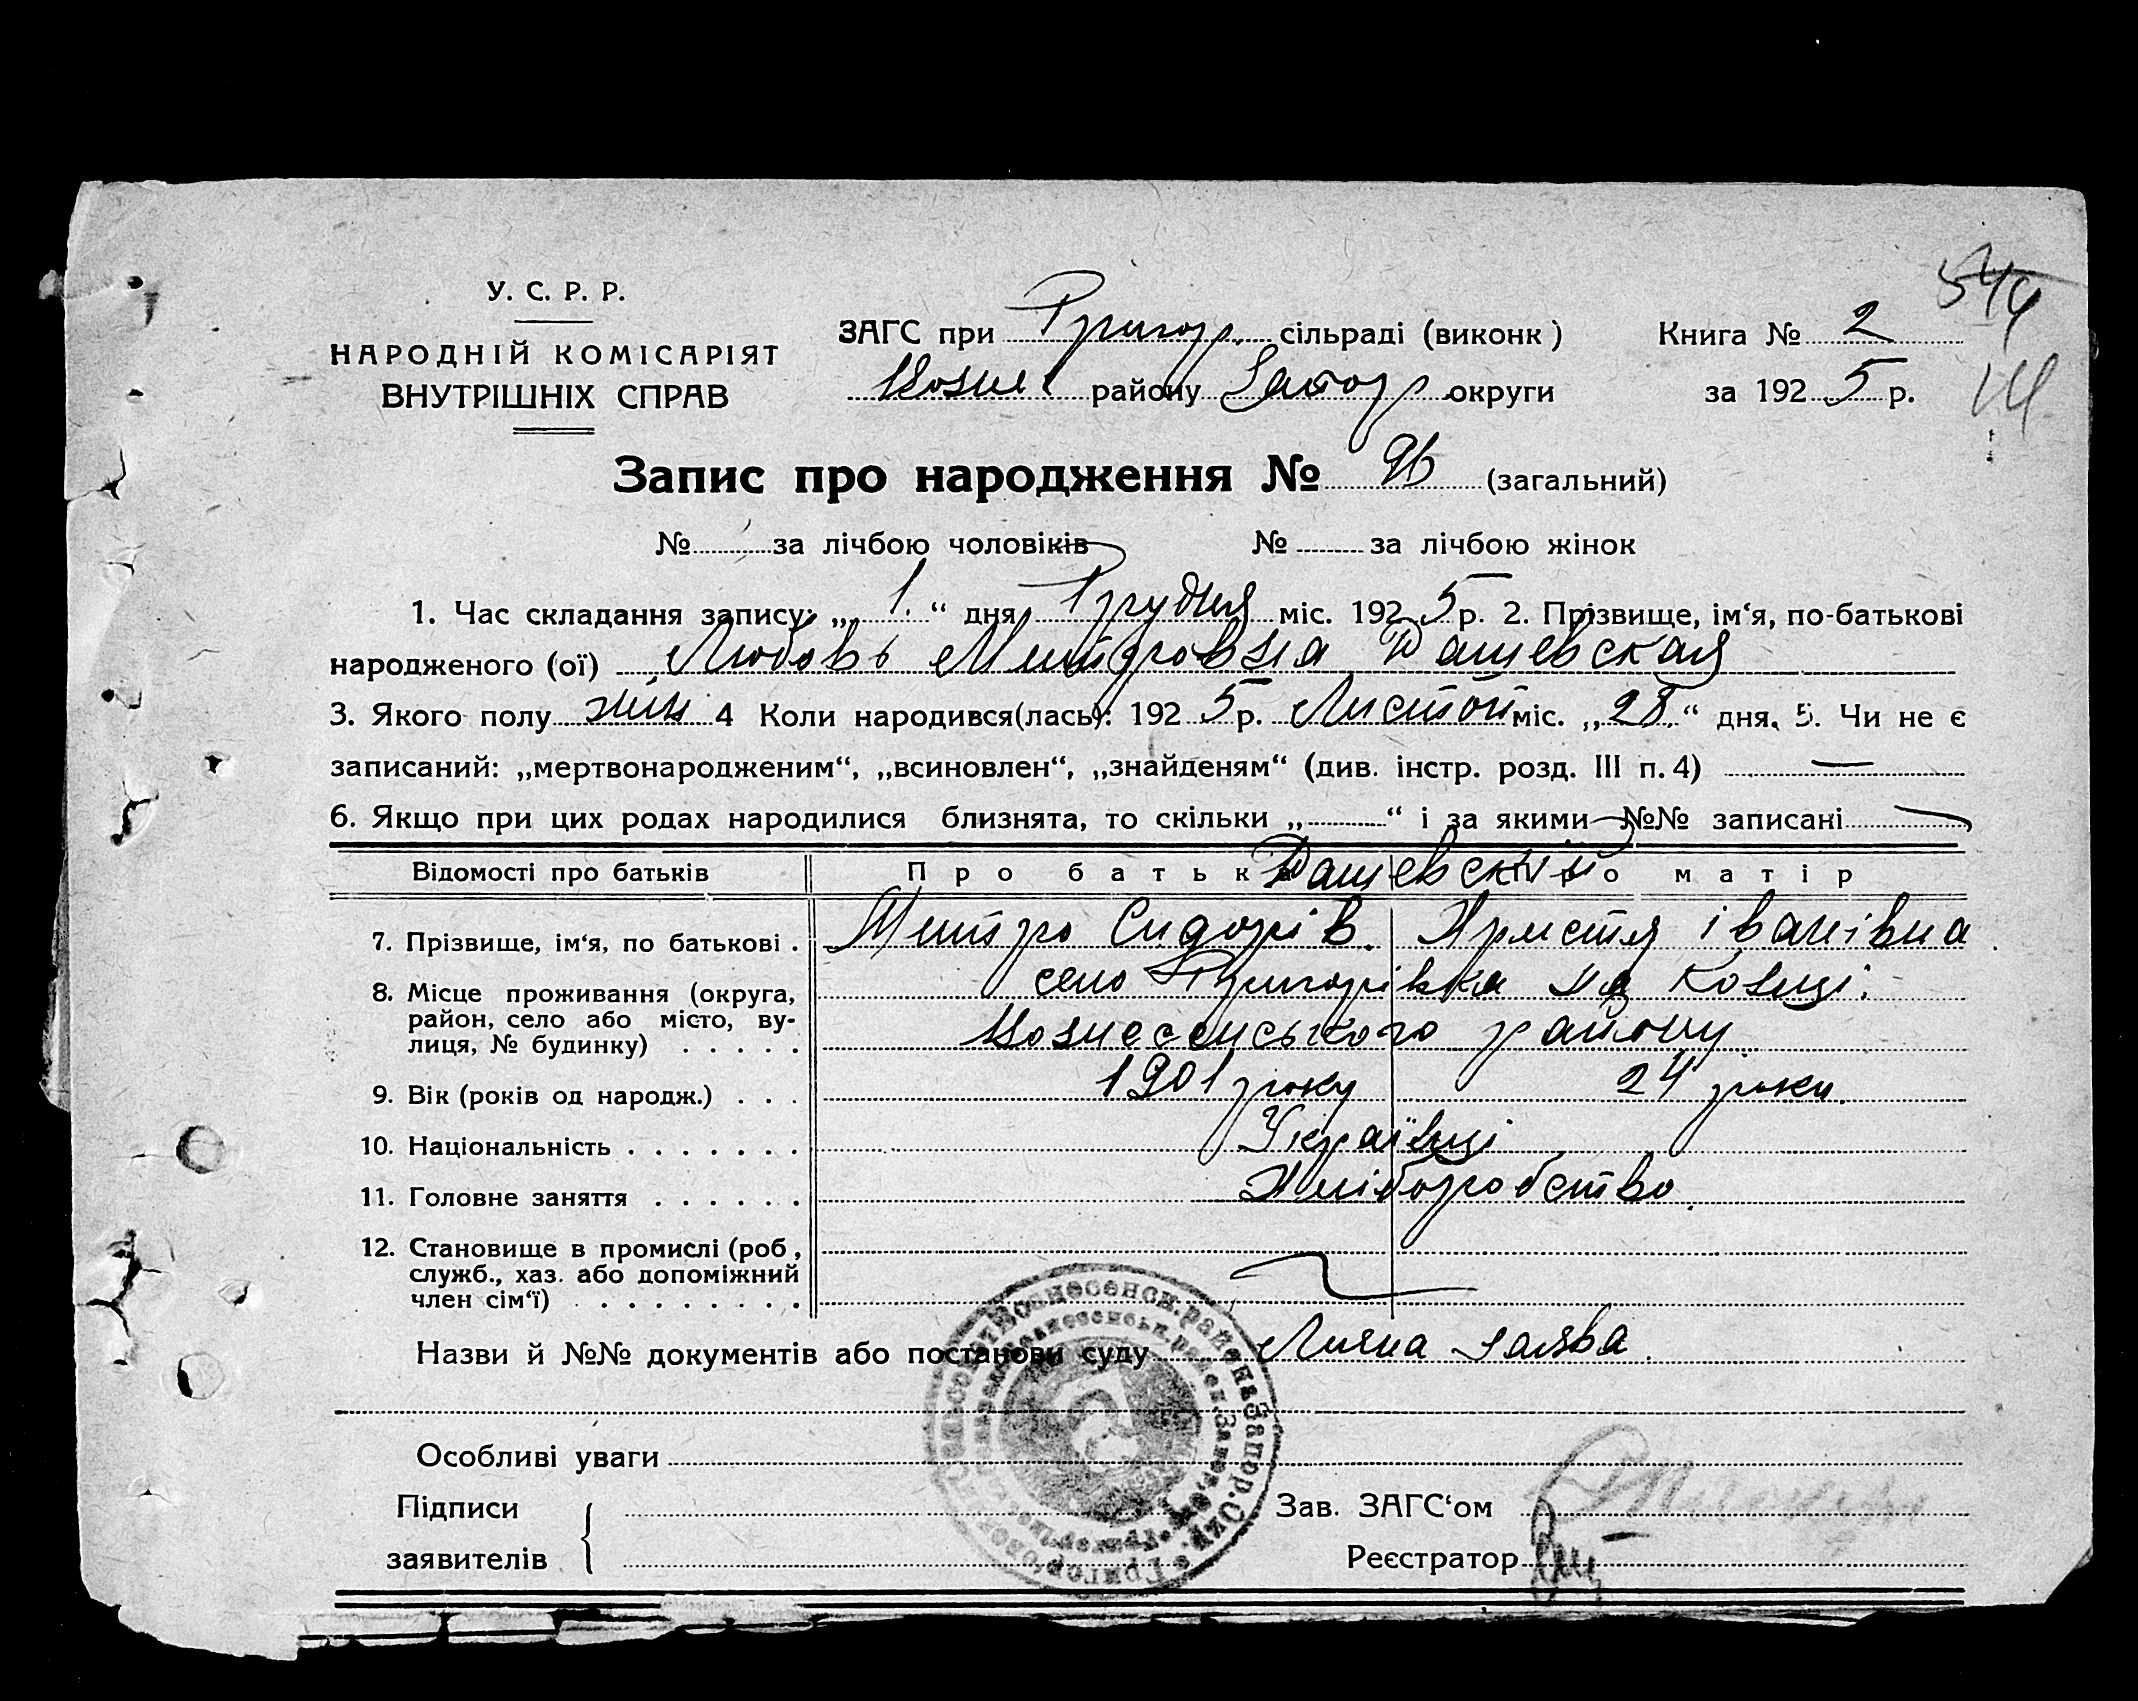 У. С. Р. Р.
НАРОДНІЙ КОМІСАРІЯТ
ВНУТРІШНІХ СПРАВ
ЗАГС при Григор. сільраді (виконк)
Возне району Запор округи
Книга № 2
за 1925 р.
Запис про народження № 96 (загальний)
№ за лічбою чоловіків № за лічбою жінок
1. Час складання запису: „1.“ дня Грудня міс. 1925 р. 2. Прізвище, ім‘я, по-батькові
народженого (ої) Любовь Митровна Дашевская
3. Якого полу жін 4 Коли народився(лась): 1925 р. Листоп міс. „28“ дня. 5. Чи не є
записаний: „мертвонародженим“, „всиновлен“, „знайденям“ (див. інстр. розд. III п. 4) —
6. Якщо при цих родах народилися близнята, то скільки „ “ і за якими №№ записані
Відомості про батьків Про батька Про матір
Дашевский
7. Прізвище, ім‘я, по батькові . Митро Сидорів. Христя Іванівна
8. Місце проживання (округа, село Григорівка
район, село або місто, ву- Вознесенського району
лиця, № будинку) . . . . .
9. Вік (років од народж.) . . . 1901 року 24 роки.
10. Національність . . . . . . . Українці
11. Головне заняття . . . . . . Хліборобство
12. Становище в промислі (роб,
служб., хаз. або допоміжний
член сім‘ї) . . . . . . . .
Назви й №№ документів або постанови суду Лична заява.
Особливі уваги
Підписи
заявителів
Зав. ЗАГС‘ом
Реєстратор